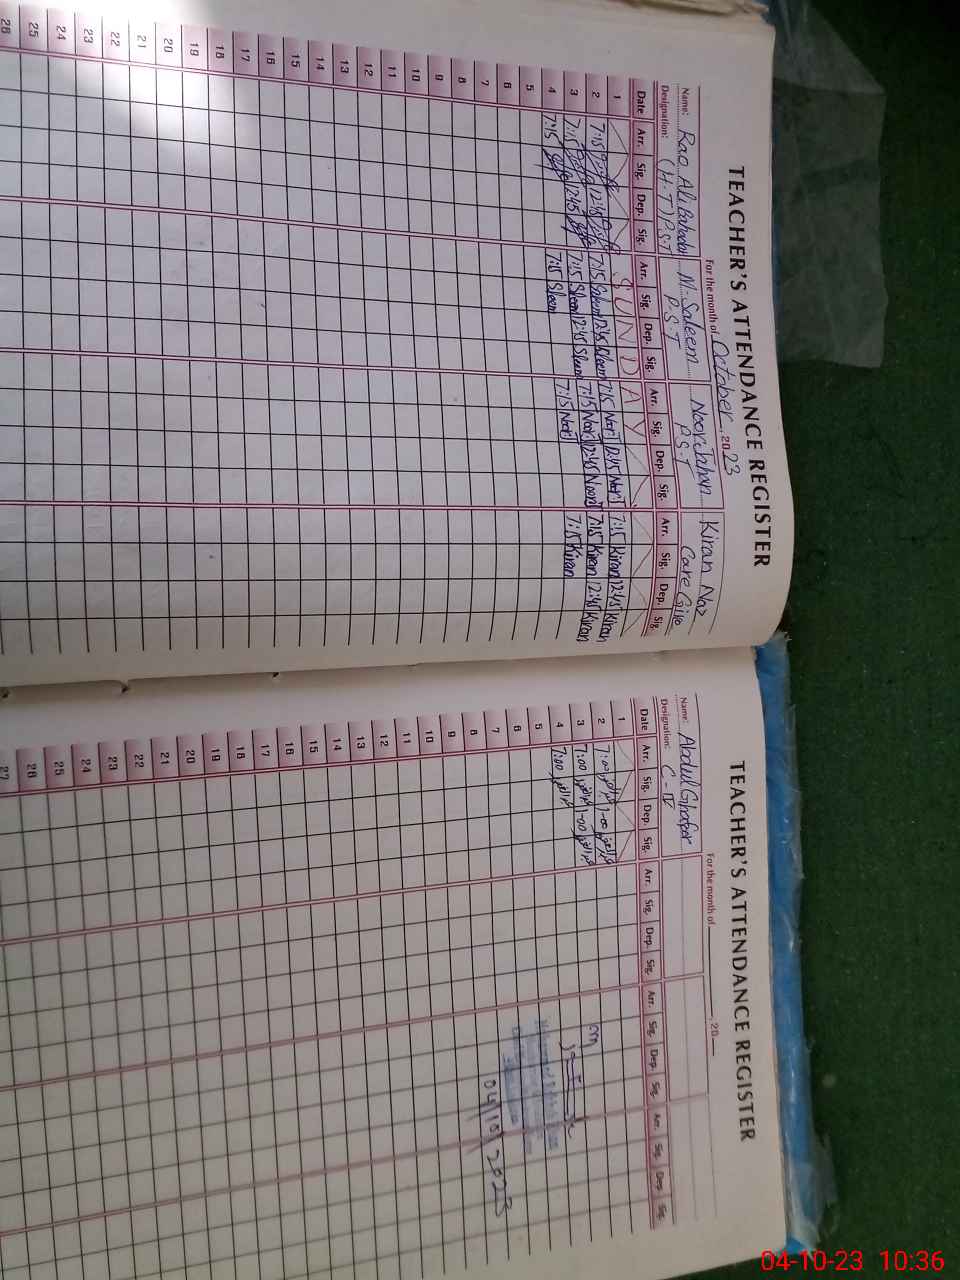 TEACHER'S ATTENDANCE REGISTER
For the month of October, 2023
Name: Rao Ali Bahadar M. Saleem Noor Jahan Kiran Naz
Designation: (H.T) P.S.T P.S.T P.S.T Care Give
Date Arr. Sig. Dep. Sig. Arr. Sig. Dep. Sig. Arr. Sig. Dep. Sig. Arr. Sig. Dep. Sig.
1 SUNDAY
2 7:15 12:45 7:15 Saleem 12:45 Sleem 7:15 Noor J 12:45 Noor J 7:15 Kiran 12:45 Kiran
3 7:15 12:45 7:15 Sleem 12:45 Sleem 7:15 Noor J 12:45 Noor J 7:15 Kiran 12:45 Kiran
4 7:15 7:15 Sleem 7:15 Noor J 7:15 Kiran
5
6
7
8
9
10
11
12
13
14
15
16
17
18
19
20
21
22
23
24
25
26
TEACHER'S ATTENDANCE REGISTER
For the month of , 20
Name: Abdul Ghafar
Designation: C-IV
Date Arr. Sig. Dep. Sig. Arr. Sig. Dep. Sig. Arr. Sig. Dep. Sig. Arr. Sig. Dep. Sig.
1
2 7:00 عبدالغفار 1-00 عبدالغفار
3 7:00 عبدالغفار 1-00 عبدالغفار
4 7:00 عبدالغفار
5
6
7
8
9
10
11
12
13
14
15
16
17
18
19
20
21
22
23
24
25
26
27
04/10/2023
04-10-23 10:36